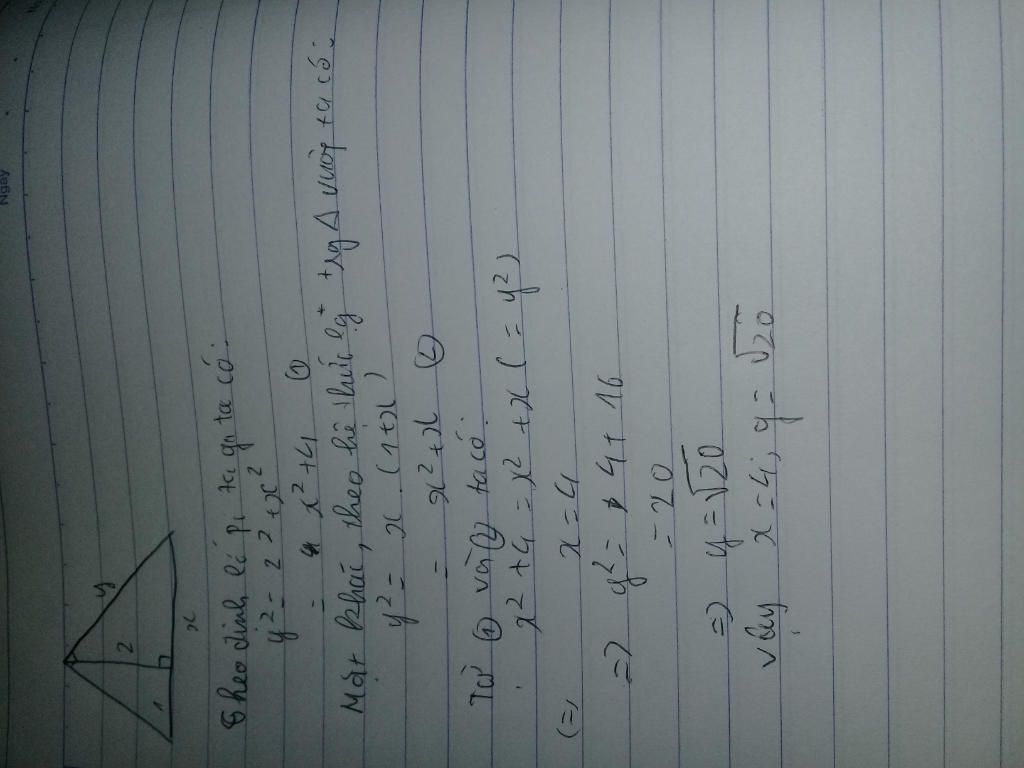 Ngày
y
2
1
x
Theo định lí pi ta go ta có:
y² = 2² + x²
= x² + 4 ①
Mặt khác, theo hệ thức lg⁺ trg Δ vuông ta có:
y² = x . (1+x)
= x² + x ②
Từ ① và ② ta có:
x² + 4 = x² + x ( = y²)
(=) x = 4
=) y² = 4 + 16
= 20
=) y = √20
Vậy x = 4; y = √20